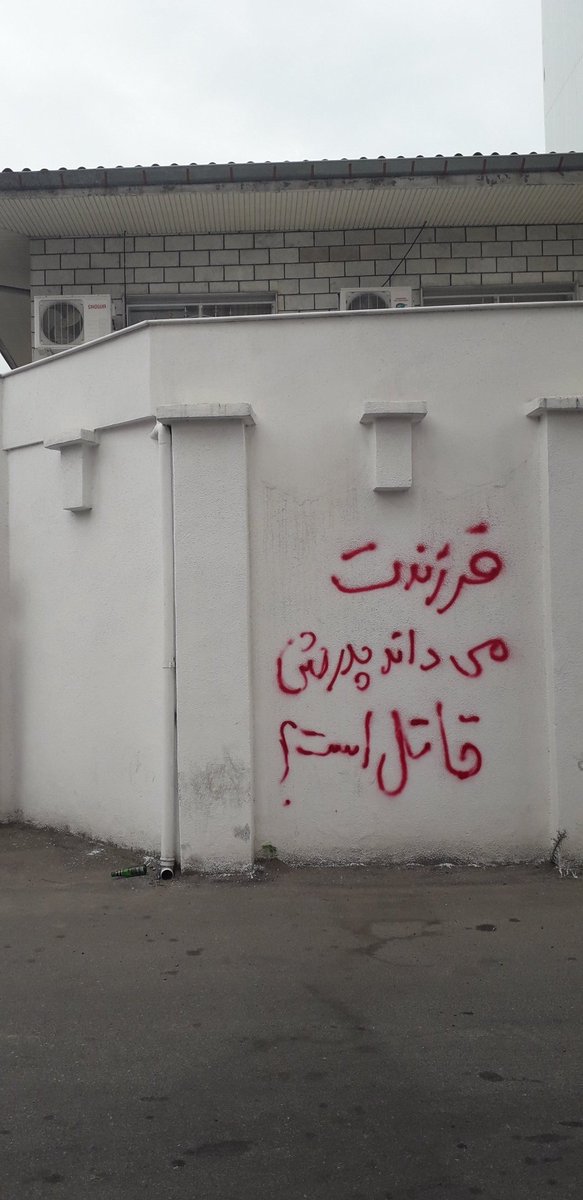 فرزندت
می داند پدرش
قاتل است؟